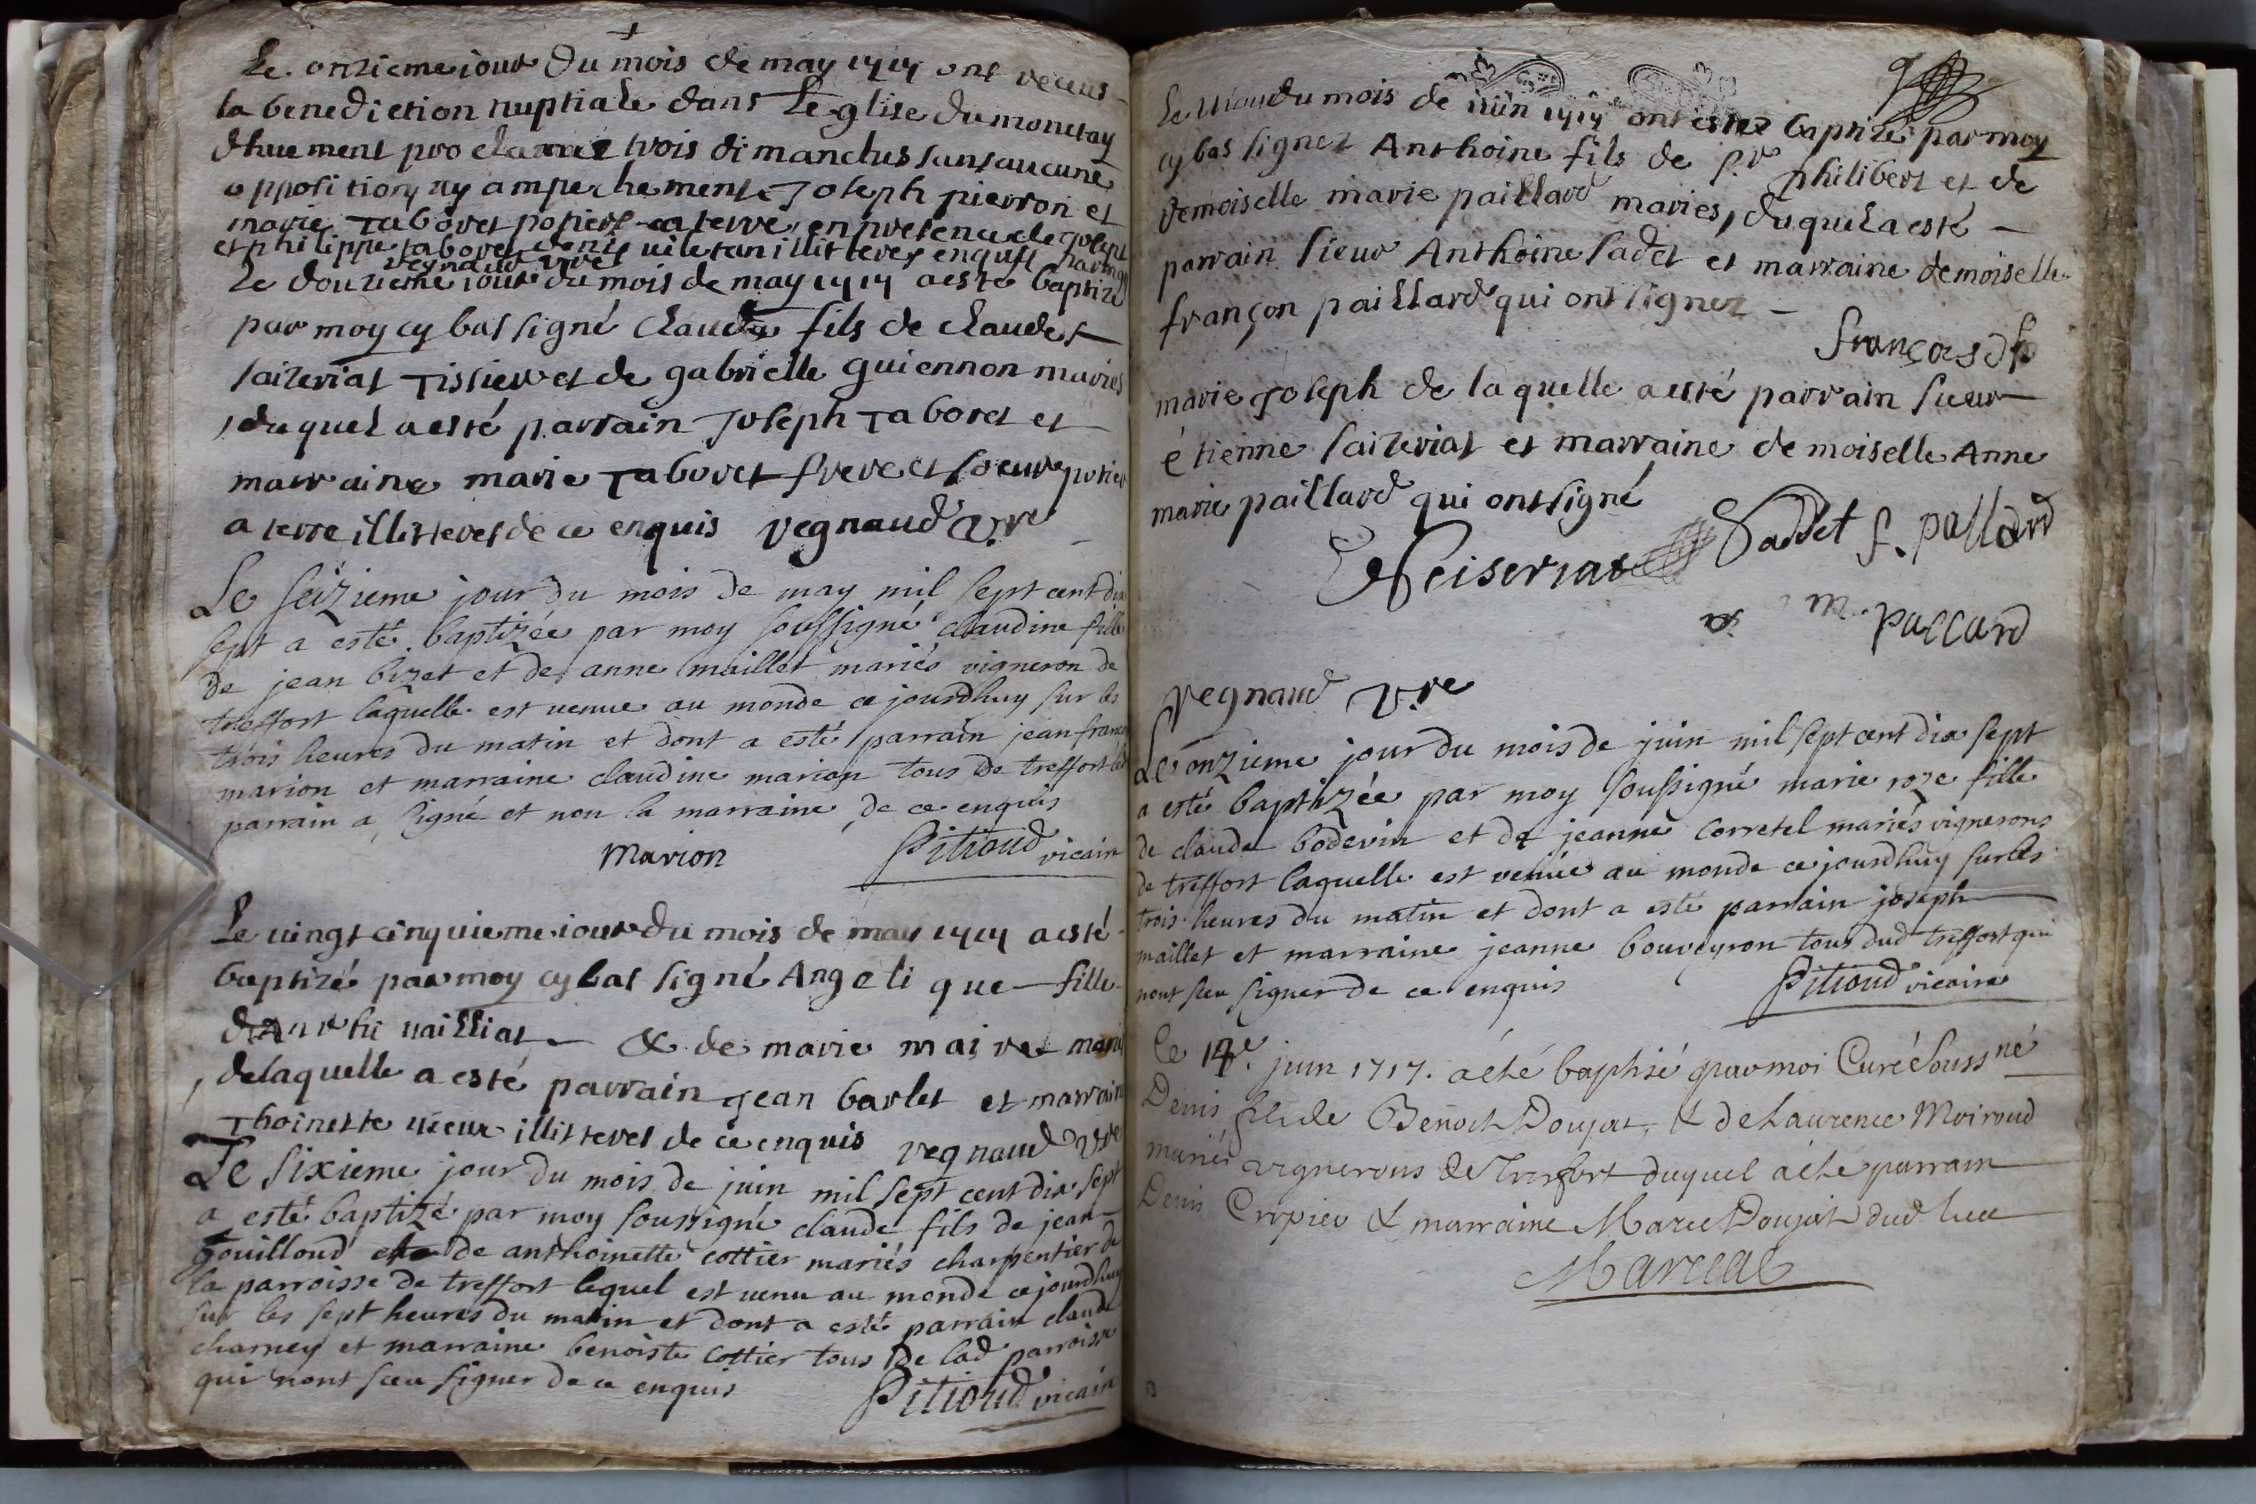 Le onzieme jour du mois de may 1717 ont receus
la benediction nuptiale dans Leglise du monetay
dhuement proclamé trois dimanches sans aucune
opposition ny ampechement Joseph pierron et
marie Taboret potiers a terre, en presence de Joseph
et philippe taboret denis illitteres enquis
regnaud vre
Le douzieme jour du mois de may 1717 a esté baptizé
par moy cy bas signé Claude fils de claude
saizeriat Tissier et de gabrielle guiennon mariés
, duquel a esté parrain Joseph Taboret et
marraine marie Taboret frere et soeur potier
a terre illitteres de ce enquis regnaud v.re
Le seizieme jour du mois de may mil sept cent dix
sept a esté baptizée par moy soussigné claudine fille
de jean bizet et de anne maillet mariés vigneron de
treffort laquelle est venue au monde ce jourdhuy sur les
trois heures du matin et dont a esté parrain jean francois
marion et marraine claudine marion tous de treffort led
parrain a signé et non la marraine de ce enquis
marion Pitioud vicaire
Le vingt cinquieme jour du mois de may 1717 a esté
baptizé par moy cy bas signé Angelique fille
vailliat & de marie mairet mariés
, delaquelle a esté parrain Jean barlet et marraine
Thoinette vieux illitteres de ce enquis regnaud vre
Le sixieme jour du mois de juin mil sept cent dix sept
a esté baptizé par moy soussigné claude fils de jean
gouilloud et de anthoinette cottier mariés charpentier de
la parroisse de treffort lequel est venu au monde ce jourdhuy
sur les sept heures du matin et dont a esté parrain claude
charney et marraine benoiste cottier tous de lad parroisse
qui nont sceu signer de ce enquis Pitioud vicaire
Le du mois de iuin 1717 ont estez baptizé par moy
cy bas signez Anthoine fils de sr philibert et de
demoiselle marie paillard mariés, duquel a esté
parrain sieur Anthoine sadet et marraine demoiselle
françon paillard qui ont signez
françois
marie Joseph de laquelle a esté parrain sieur
étienne saizeriat et marraine demoiselle Anne
marie paillard qui ont signé
Seiseriat Saddet f. pallard
m. paccard
regnaud v.re
Le onzieme jour du mois de juin mil sept cent dix sept
a esté baptizée par moy soussigné marie roze fille
de claude bodevin et de jeanne corretel mariés vignerons
de treffort laquelle est venue au monde ce jourdhuy sur les
trois heures du matin et dont a esté parrain joseph
maillet et marraine jeanne bouveyron tous dud treffort qui
nont sceu signer de ce enquis Pitioud vicaire
Le 14e. juin 1717. a été baptisé par moi Curé soussné
Denis fils de Benoit Doujat, & de Laurence Moiroud
mariés vignerons de Treffort duquel a été parrain
Denis Cropier & marraine Marie Doujat dud lieu
Marccal